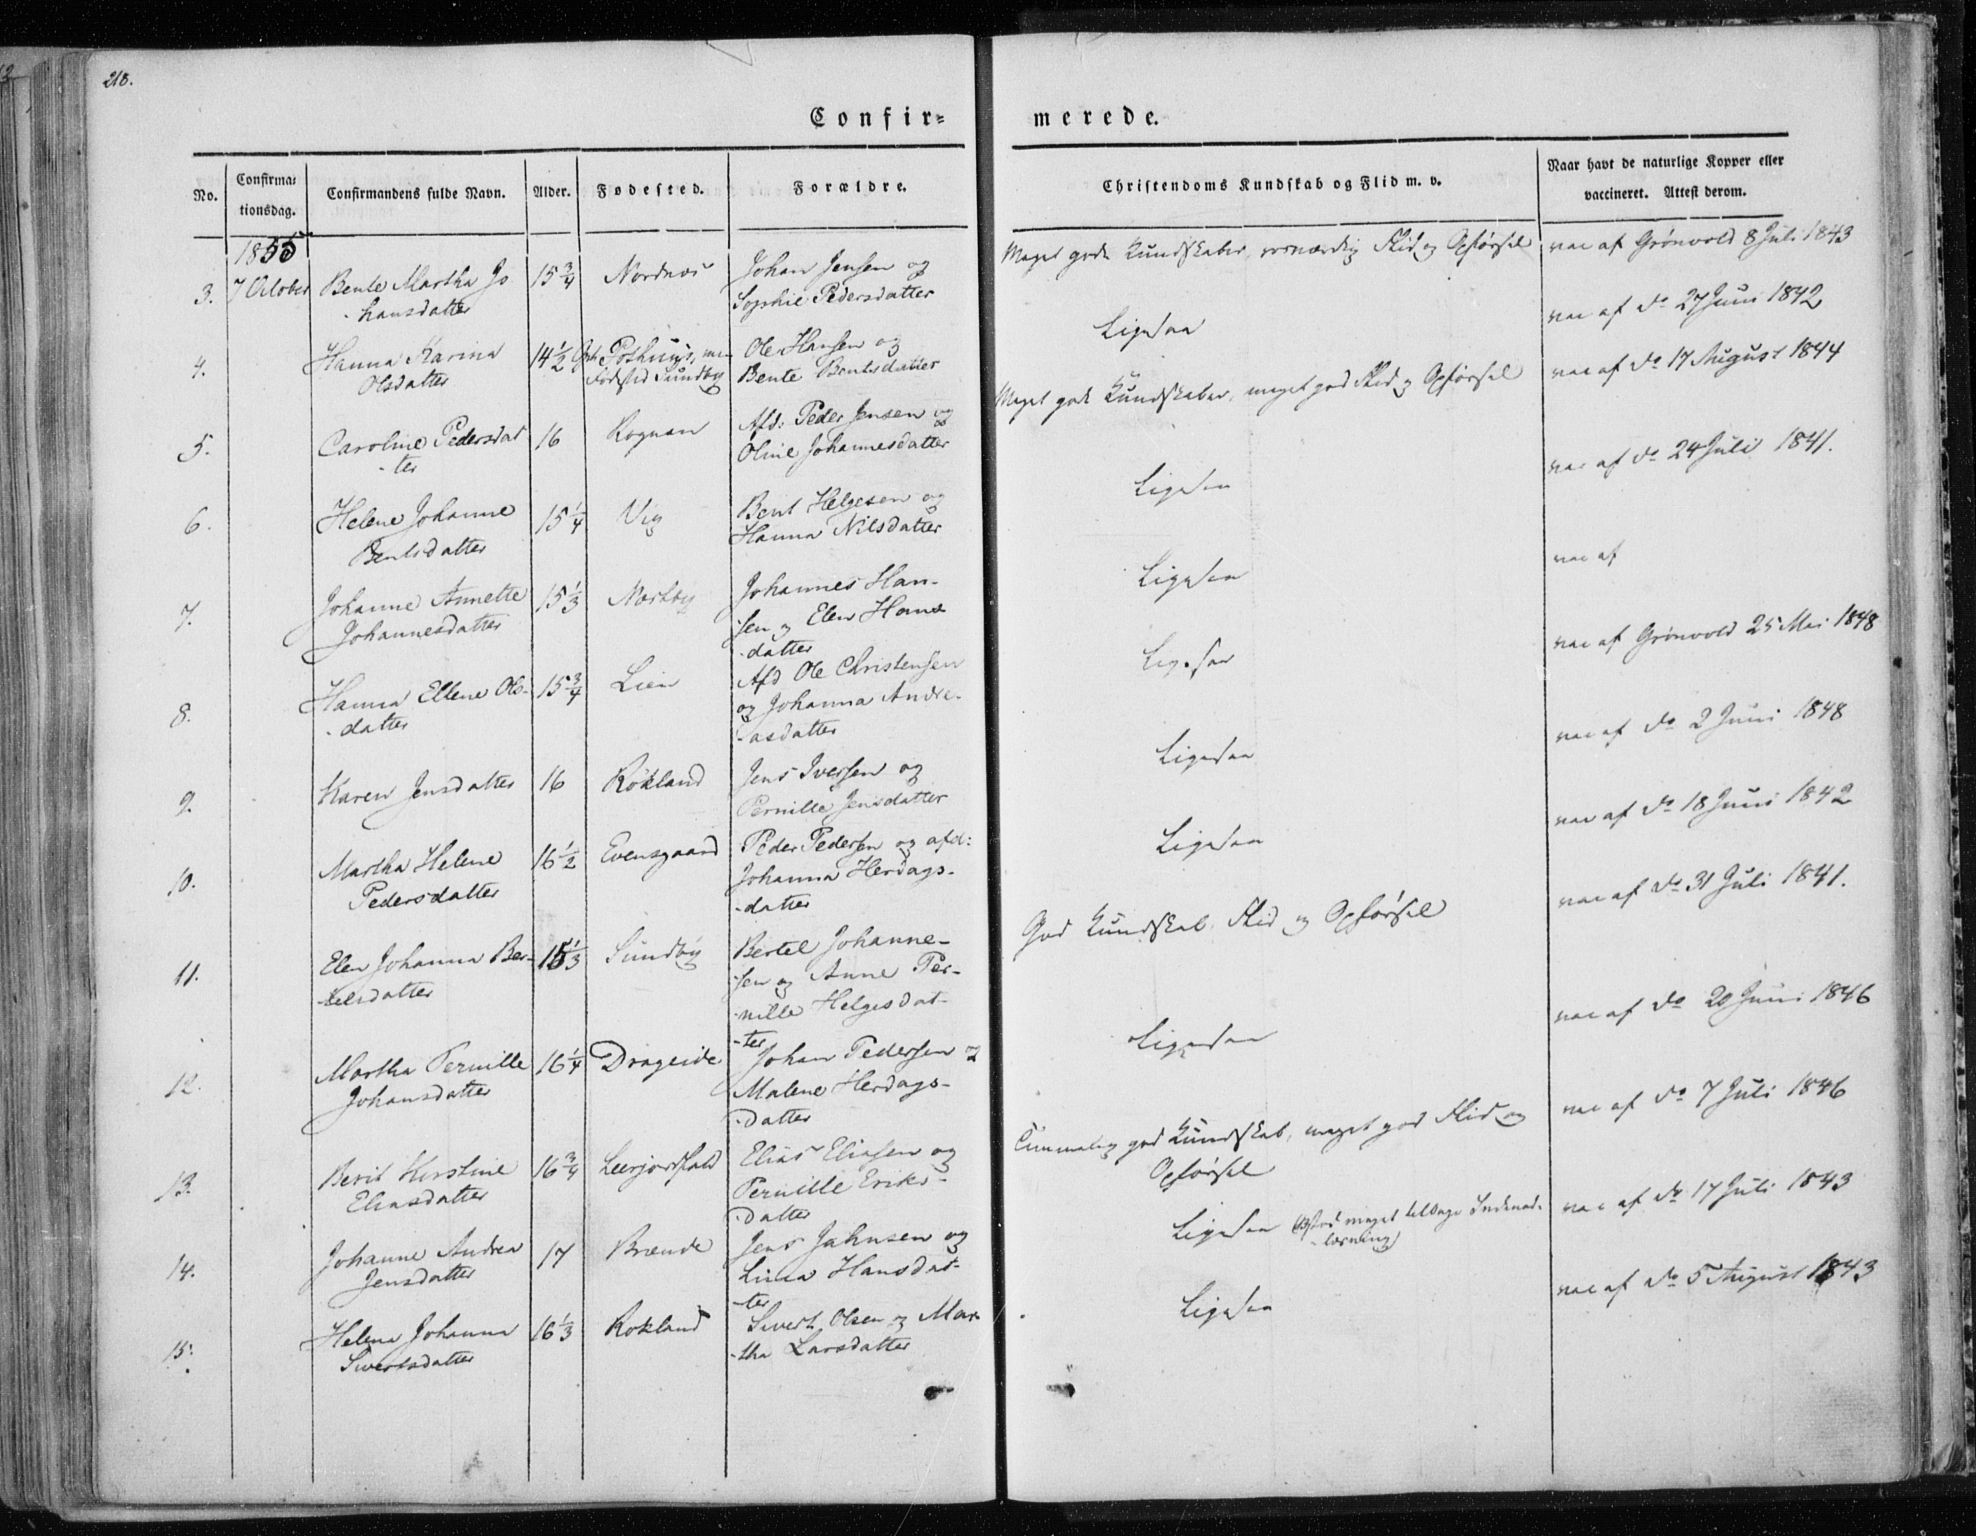 218.
Confir=
merede.
No.
Confirma=
tionsdag.
Confirmandens fulde Navn.
Alder.
Fødested.
Forældre.
Christendoms Kundskab og Flid m. v.
Naar havt de naturlige Kopper eller
vaccineret. Attest derom.
1855
3. 7 October Bente Martha Jo 15 3/4 Nordnæs Johan Jensen og
hansdatter Sophie Pedersdatter
Meget gode Kundskaber, rosværdig Flid og Opførsel vac af Grönvold 8 Juli 1843
4. Hanna Karina 14 1/2 Ole Hansen og
Olsdatter Fødested Sundby Bente Bentsdatter
Ligesaa vac af do 27 Juni 1842
5. Caroline Pedersdat 16 Rognan Afd: Peder Jensen og
-ter Oline Johannesdatter
Meget gode Kundskaber, meget god Flid og Opførsel vac af do 17 August 1844
6. Helene Johanne 15 1/4 Vig Bent Helgesen og
Bentsdatter Hanna Nilsdatter
Ligesaa vac af do 24 Juli 1841.
7. Johanne Annette 15 1/3 Nestby Johannes Han-
Johannesdatter sen og Elen Hans
-datter
Ligesaa vac af
8. Hanna Ellene Ols- 15 3/4 Lien Afd Ole Christensen
-datter og Johanna Andre-
-asdatter
Ligesaa vac af Grönvold 25 Mai 1848
9. Karen Jensdatter 16 Rökland Jens Iversen og
Pernille Jensdatter
Ligesaa vac af do 2 Juni 1848
10. Martha Helene 16 1/2 Evensgaard Peder Pedersen og afd:
Pedersdatter Johanna Herdags-
-datter
Ligesaa vac af do 18 Juni 1842
11. Elen Johanna Ber- 15 1/3 Sundby Bertel Johanne-
-telsdatter sen og Anne Per-
-nille Helgesdat-
-ter
God Kundskab, Flid og Opførsel vac af do 31 Juli 1841.
12. Martha Pernille 16 1/4 Drageide Johan Pedersen og
Johansdatter Malene Herdags-
-datter
Ligesaa vac af do 20 Juni 1846
13. Berit Kirstine 16 3/4 Leerjordfald Elias Eliasen og
Eliasdatter Pernille Eriks-
-datter
Temmelig god Kundskab, meget god Flid og
Opførsel vac af do 7 Juli 1846
14. Johanne Andrea 17 Brænde Jens Jahnsen og
Jensdatter Lina Hansdat-
-ter
Ligesaa meget tilbage Indenad-
-læsning) vac af do 17 Juli 1843
15. Helena Johanna 16 1/3 Rokland Sivert Olsen og Mar
Sivertsdatter -tha Larsdatter
Ligesaa vac af do 5 August 1843